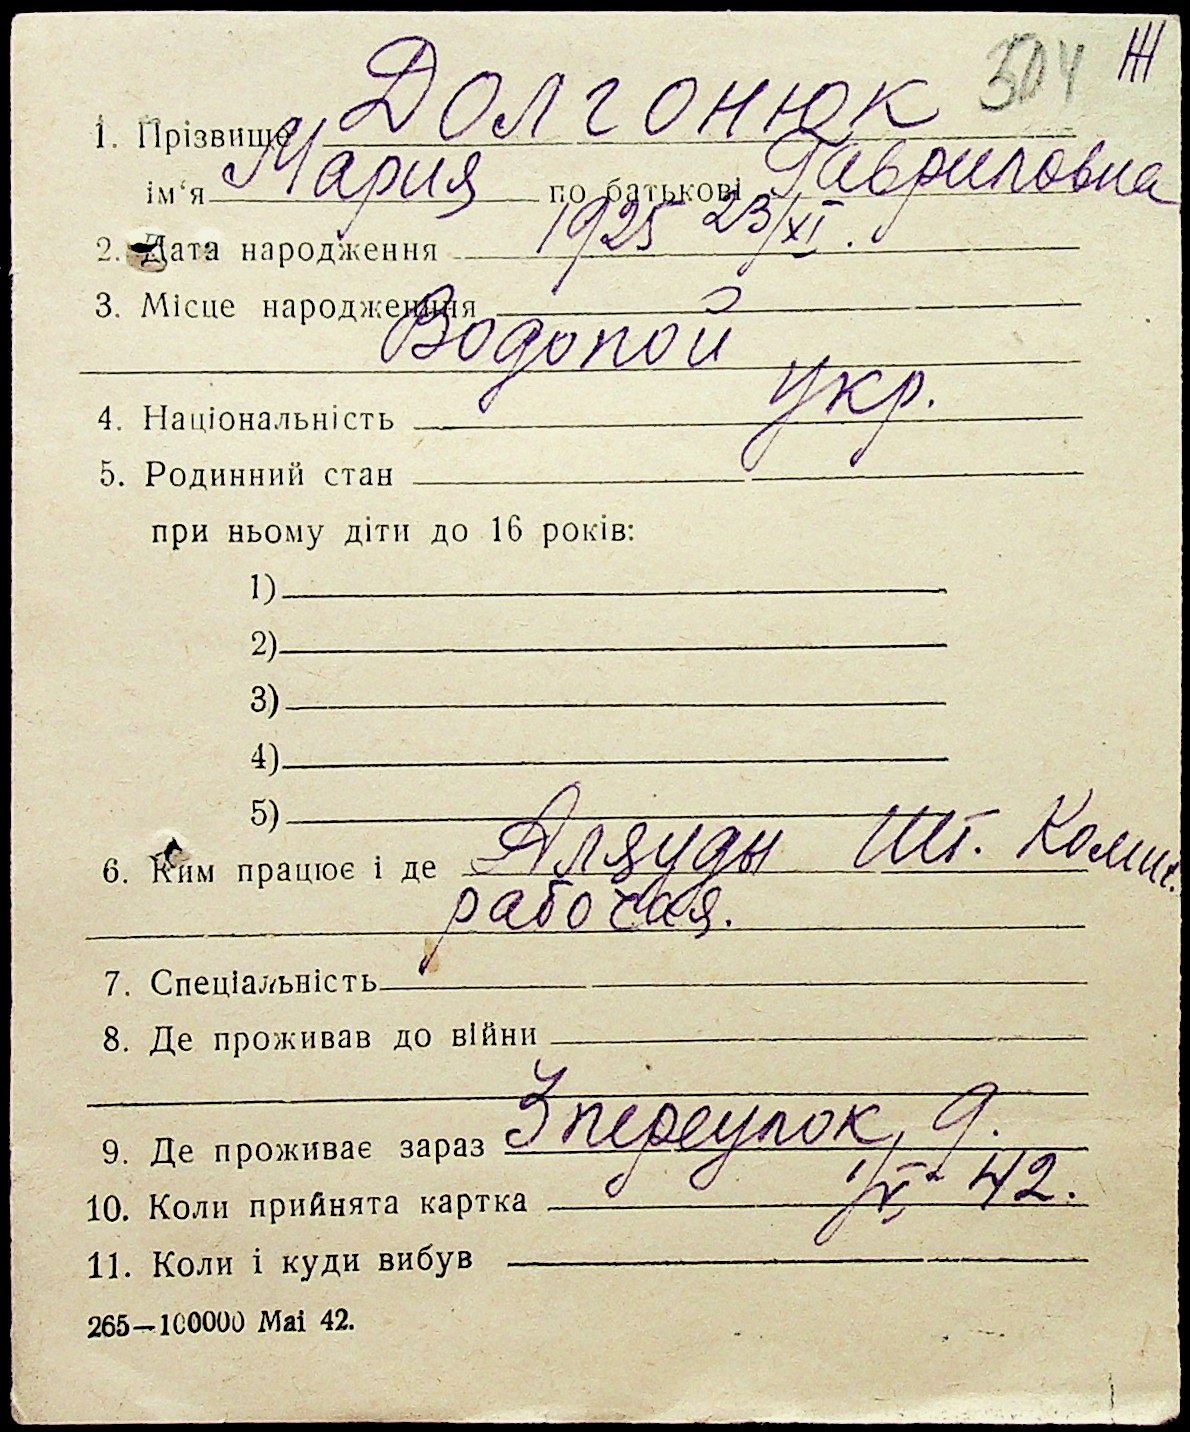 504 Ж
1. Прізвище Долгонюк
ім‘я Мария по батькові Гавриловна
2. Дата народження 1925 23/XI.
3. Місце народження
Водопой
4. Національність укр.
5. Родинний стан
при ньому діти до 16 років:
1)
2)
3)
4)
5)
6. Ким працює і де Шт.
рабочая.
7. Спеціальність
8. Де проживав до війни
9. Де проживає зараз 3 переулок, 9.
10. Коли прийнята картка 42.
11. Коли і куди вибув
265—100000 Mai 42.